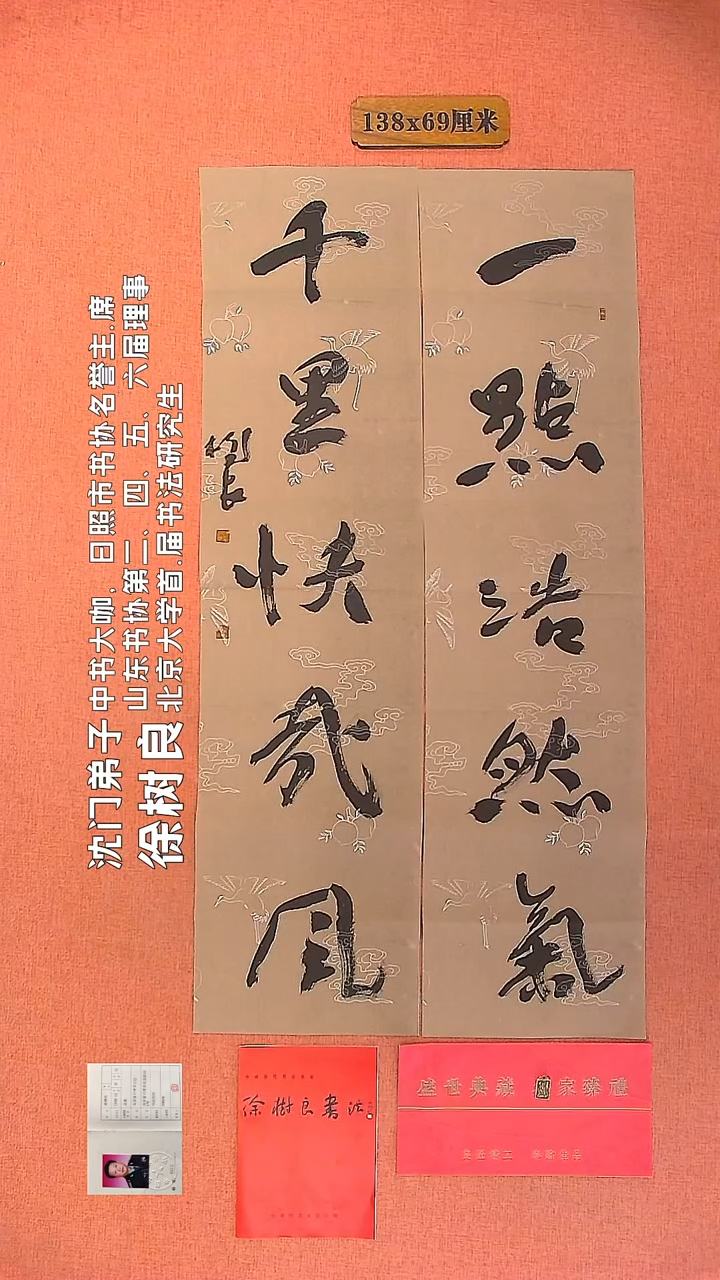 138x69厘米
一點浩然氣
千里快哉风
树良
沈门弟子 中书大咖,日照市书协名誉主.席
山东书协第二、四、五、六届理事
徐树良 北京大学首.届书法研究生
徐樹良書法
盛世典藏 國家臻禮